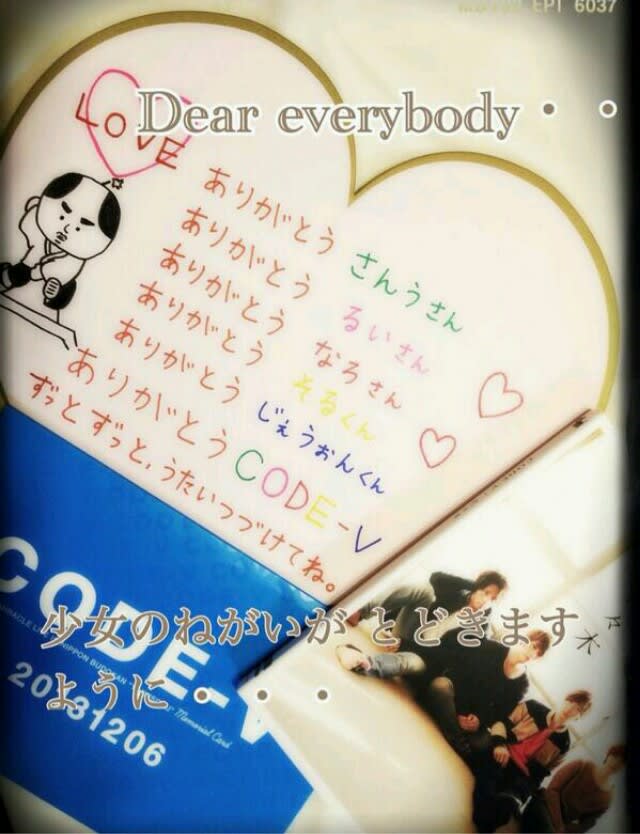 EPT 6037
Dear everybody・・
LOVE
ありがとう さんうさん
ありがとう るいさん
ありがとう なろさん
ありがとう そるくん
ありがとう じぇうぉんくん
ありがとう CODE-V
ずっとずっと、うたいつづけてね。
CODE-V
NIPPON BUDOKAN
Memorial Card
20131206
少女のねがいが とどきます
ように・・・